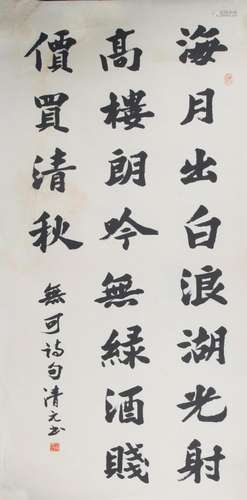 海月出白浪湖光射
高樓朗吟無緑酒賤
價買清秋
無可詩句清元书